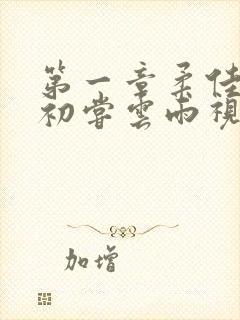 第一章柔佳
初尝云雨视
加增